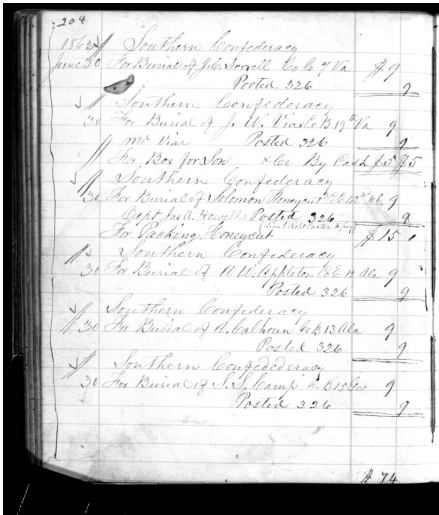 204
1862 // Southern Confederacy
June 30 For Burial of J.C. Sorrell Co C 7 Va $9
Posted 326 9
// Southern Confederacy
30 For Burial of J. W. Vias Co B 19th Va 9
Mr Vias Posted 326 9
// For Box for Son & Cr By Cash $5 $5
// Southern Confederacy
30 For Burial of Solomon Honeycut 9
Capt Jas. A. Howell Posted 326 9
For Packing Honeycut $15
// Southern Confederacy
30 For Burial of A. W. Appleton Co E Ala 9
Posted 326 9
// Southern Confederacy
// 30 For Burial of A. Calhoun Co B 13 Ala 9
Posted 326 9
// Southern Confedederacy
30 For Burial of S. S. Camp Co B 15 Ga 9
Posted 326 9
$74